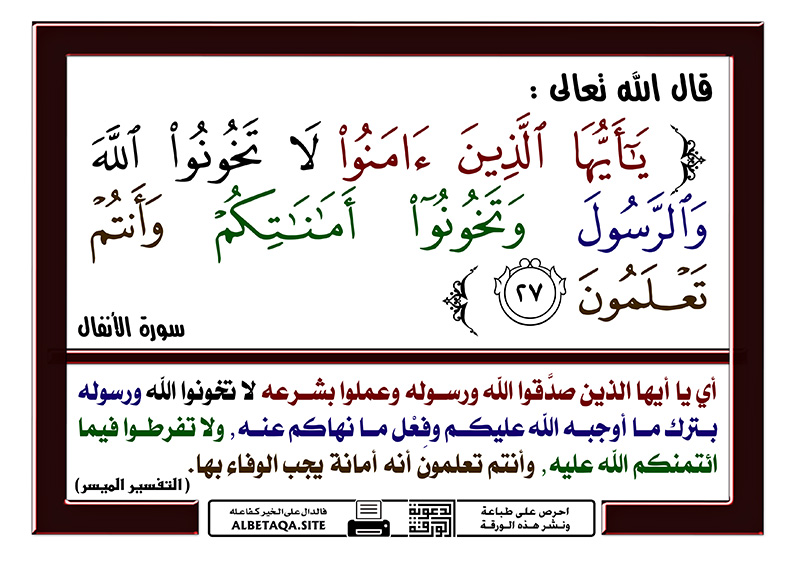 قال الله تعالى :
﴿ يَـٰٓأَيُّهَا ٱلَّذِينَ ءَامَنُوا۟ لَا تَخُونُوا۟ ٱللَّهَ
وَٱلرَّسُولَ وَتَخُونُوٓا۟ أَمَـٰنَـٰتِكُمْ وَأَنتُمْ
تَعْلَمُونَ ٢٧ ﴾
سورة الأنفال
أي يا أيها الذين صدَّقوا الله ورسوله وعملوا بشرعه لا تخونوا الله ورسوله
بترك ما أوجبه الله عليكم وفِعْل ما نهاكم عنه, ولا تفرطوا فيما
ائتمنكم الله عليه, وأنتم تعلمون أنه أمانة يجب الوفاء بها.
(التفسير الميسر)
احرص على طباعة
ونشر هذه الورقة
الورقة
الدعوية
فالدال على الخير كفاعله
ALBETAQA.SITE